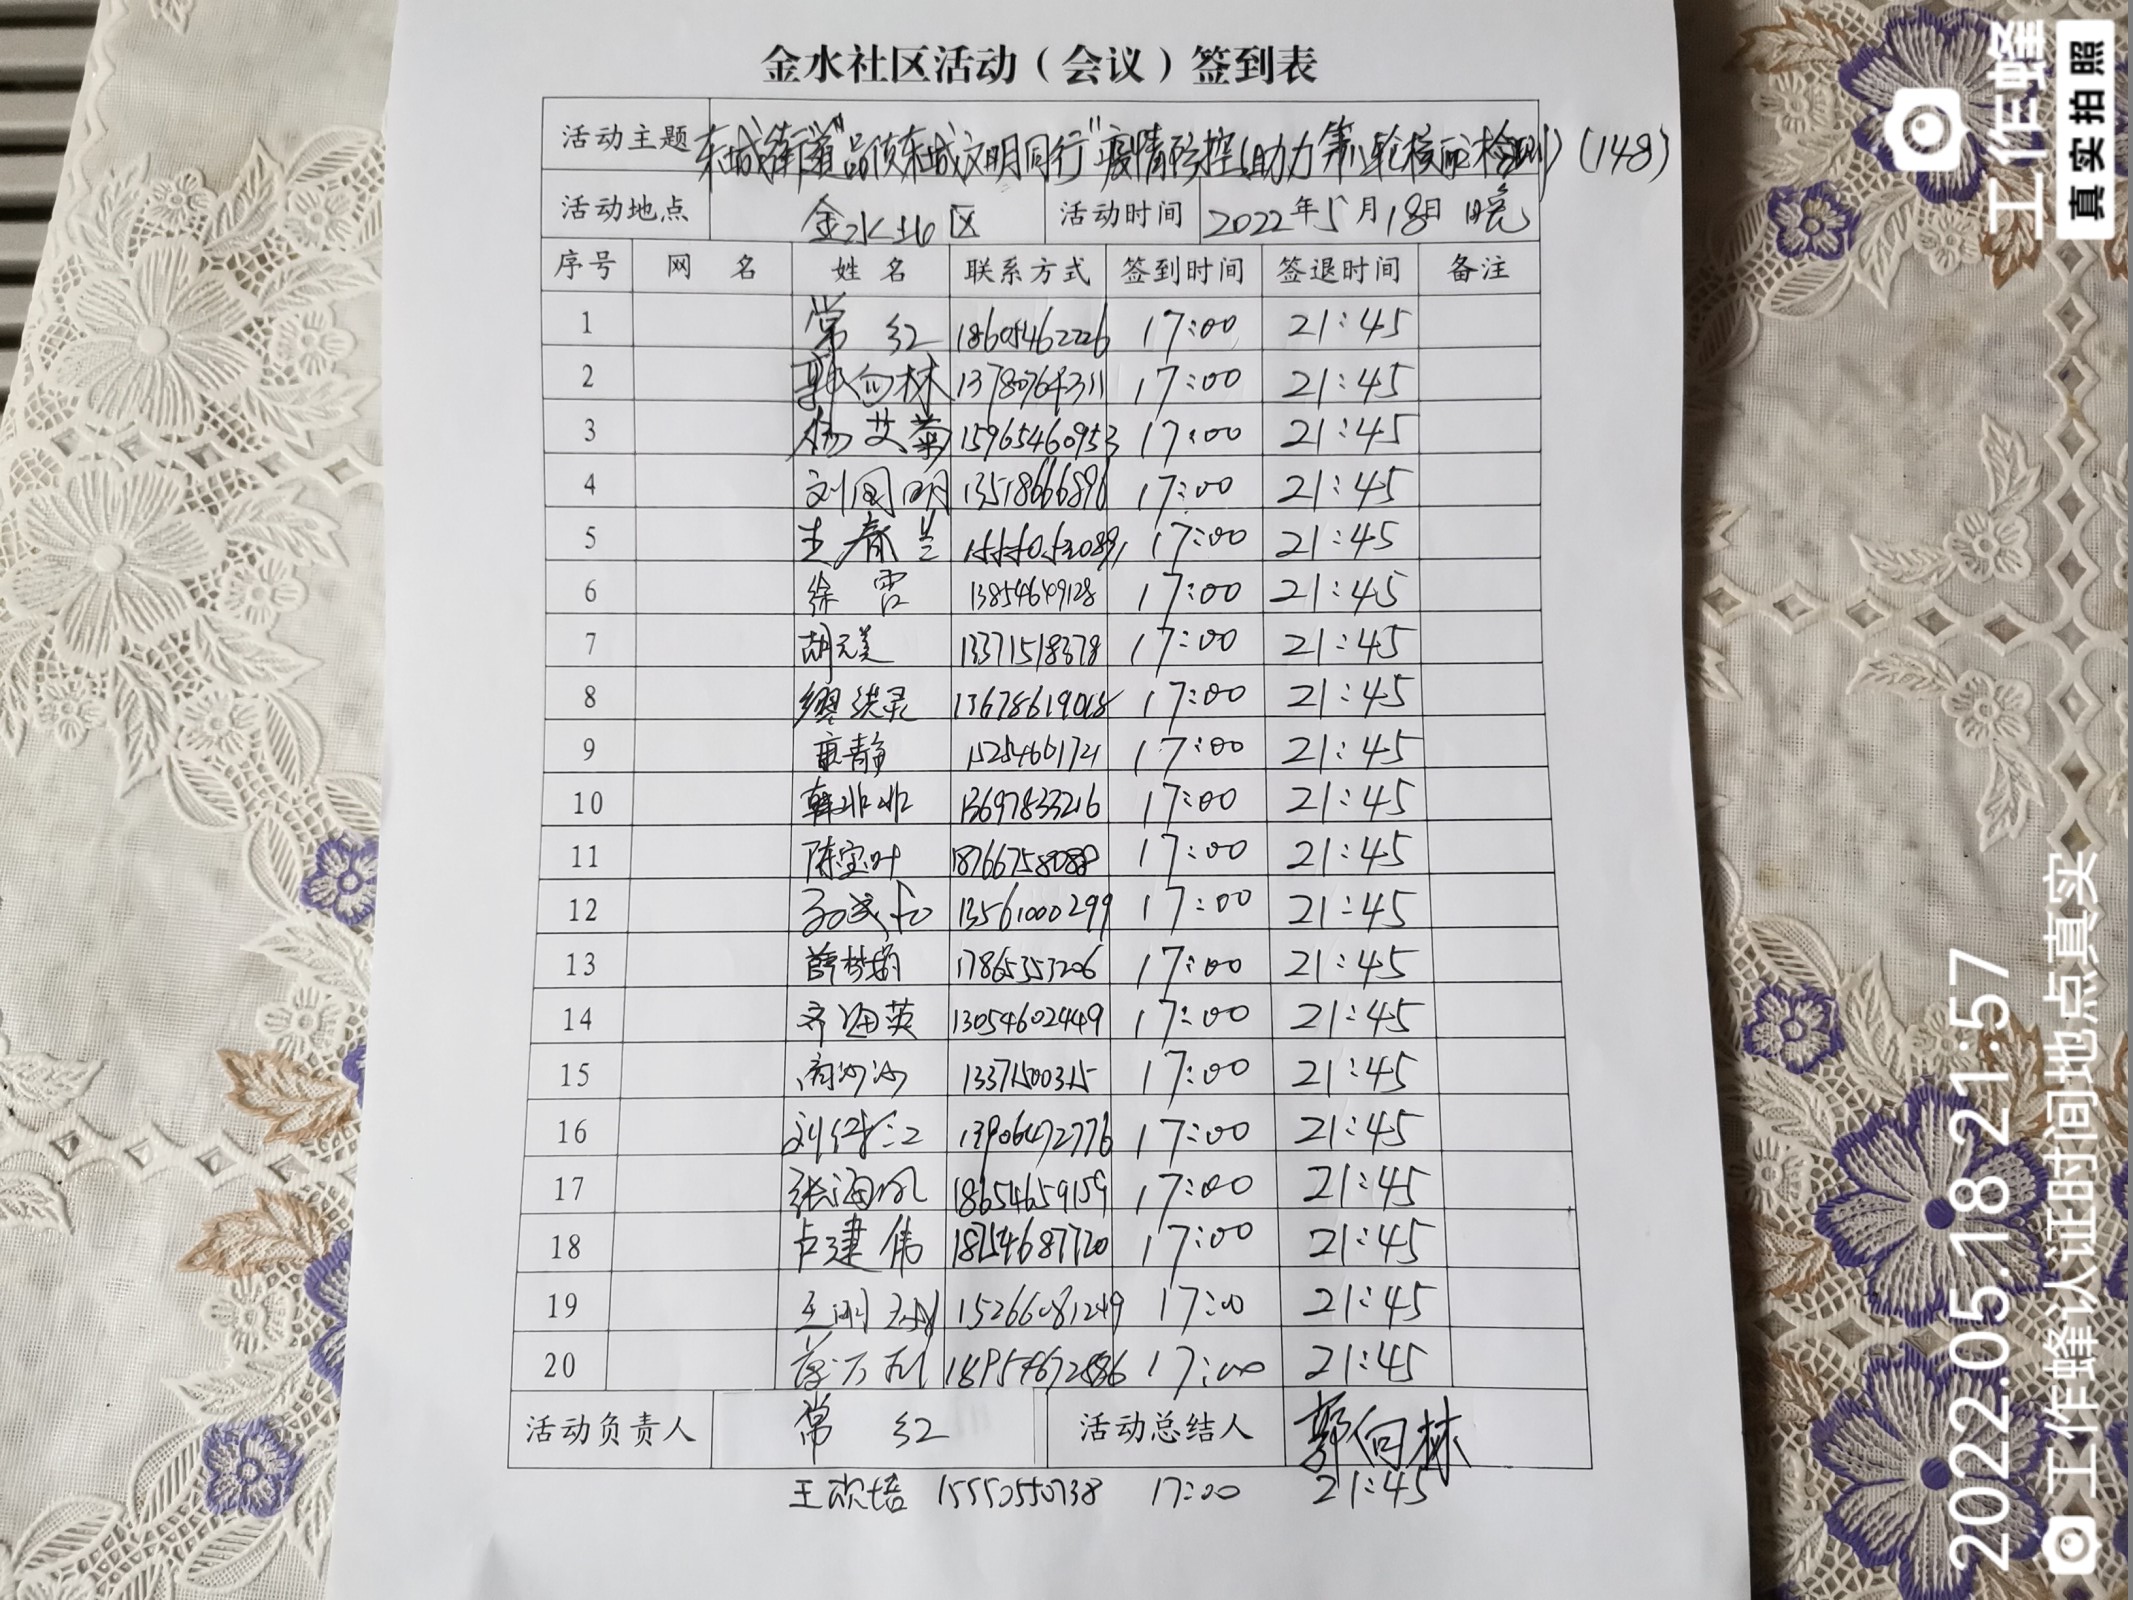 金水社区活动（会议）签到表
活动主题 东城街道"品质东城文明同行"疫情防控(助力第八轮核酸检测)(148)
活动地点 金水社区 活动时间 2022年5月18日 晚
序号 网 名 姓 名 联系方式 签到时间 签退时间 备注
1 常 红 18605462226 17:00 21:45
2 郭向林 13780764311 17:00 21:45
3 杨艾菊 15965460953 17:00 21:45
4 刘国明 13518666896 17:00 21:45
5 王春兰 17:00 21:45
6 徐 雪 13854649128 17:00 21:45
7 胡元美 13371518378 17:00 21:45
8 缪洪录 13678619068 17:00 21:45
9 静 15254661721 17:00 21:45
10 韩非非 13697833216 17:00 21:45
11 陈宝叶 18766758088 17:00 21:45
12 13561000299 17:00 21:45
13 薛梦娟 17865353206 17:00 21:45
14 齐迎英 13054602449 17:00 21:45
15 商沙沙 13371500315 17:00 21:45
16 刘红 13906472776 17:00 21:45
17 张海风 18654659159 17:00 21:45
18 卢建伟 18254687720 17:00 21:45
19 王刚 15266081249 17:00 21:45
20 17:00 21:45
活动负责人 常 红 活动总结人 郭向林
王欣培 15550550738 17:00 21:45
工作蜂
真实拍照
2022.05.18 21:57
工作蜂认证时间地点真实